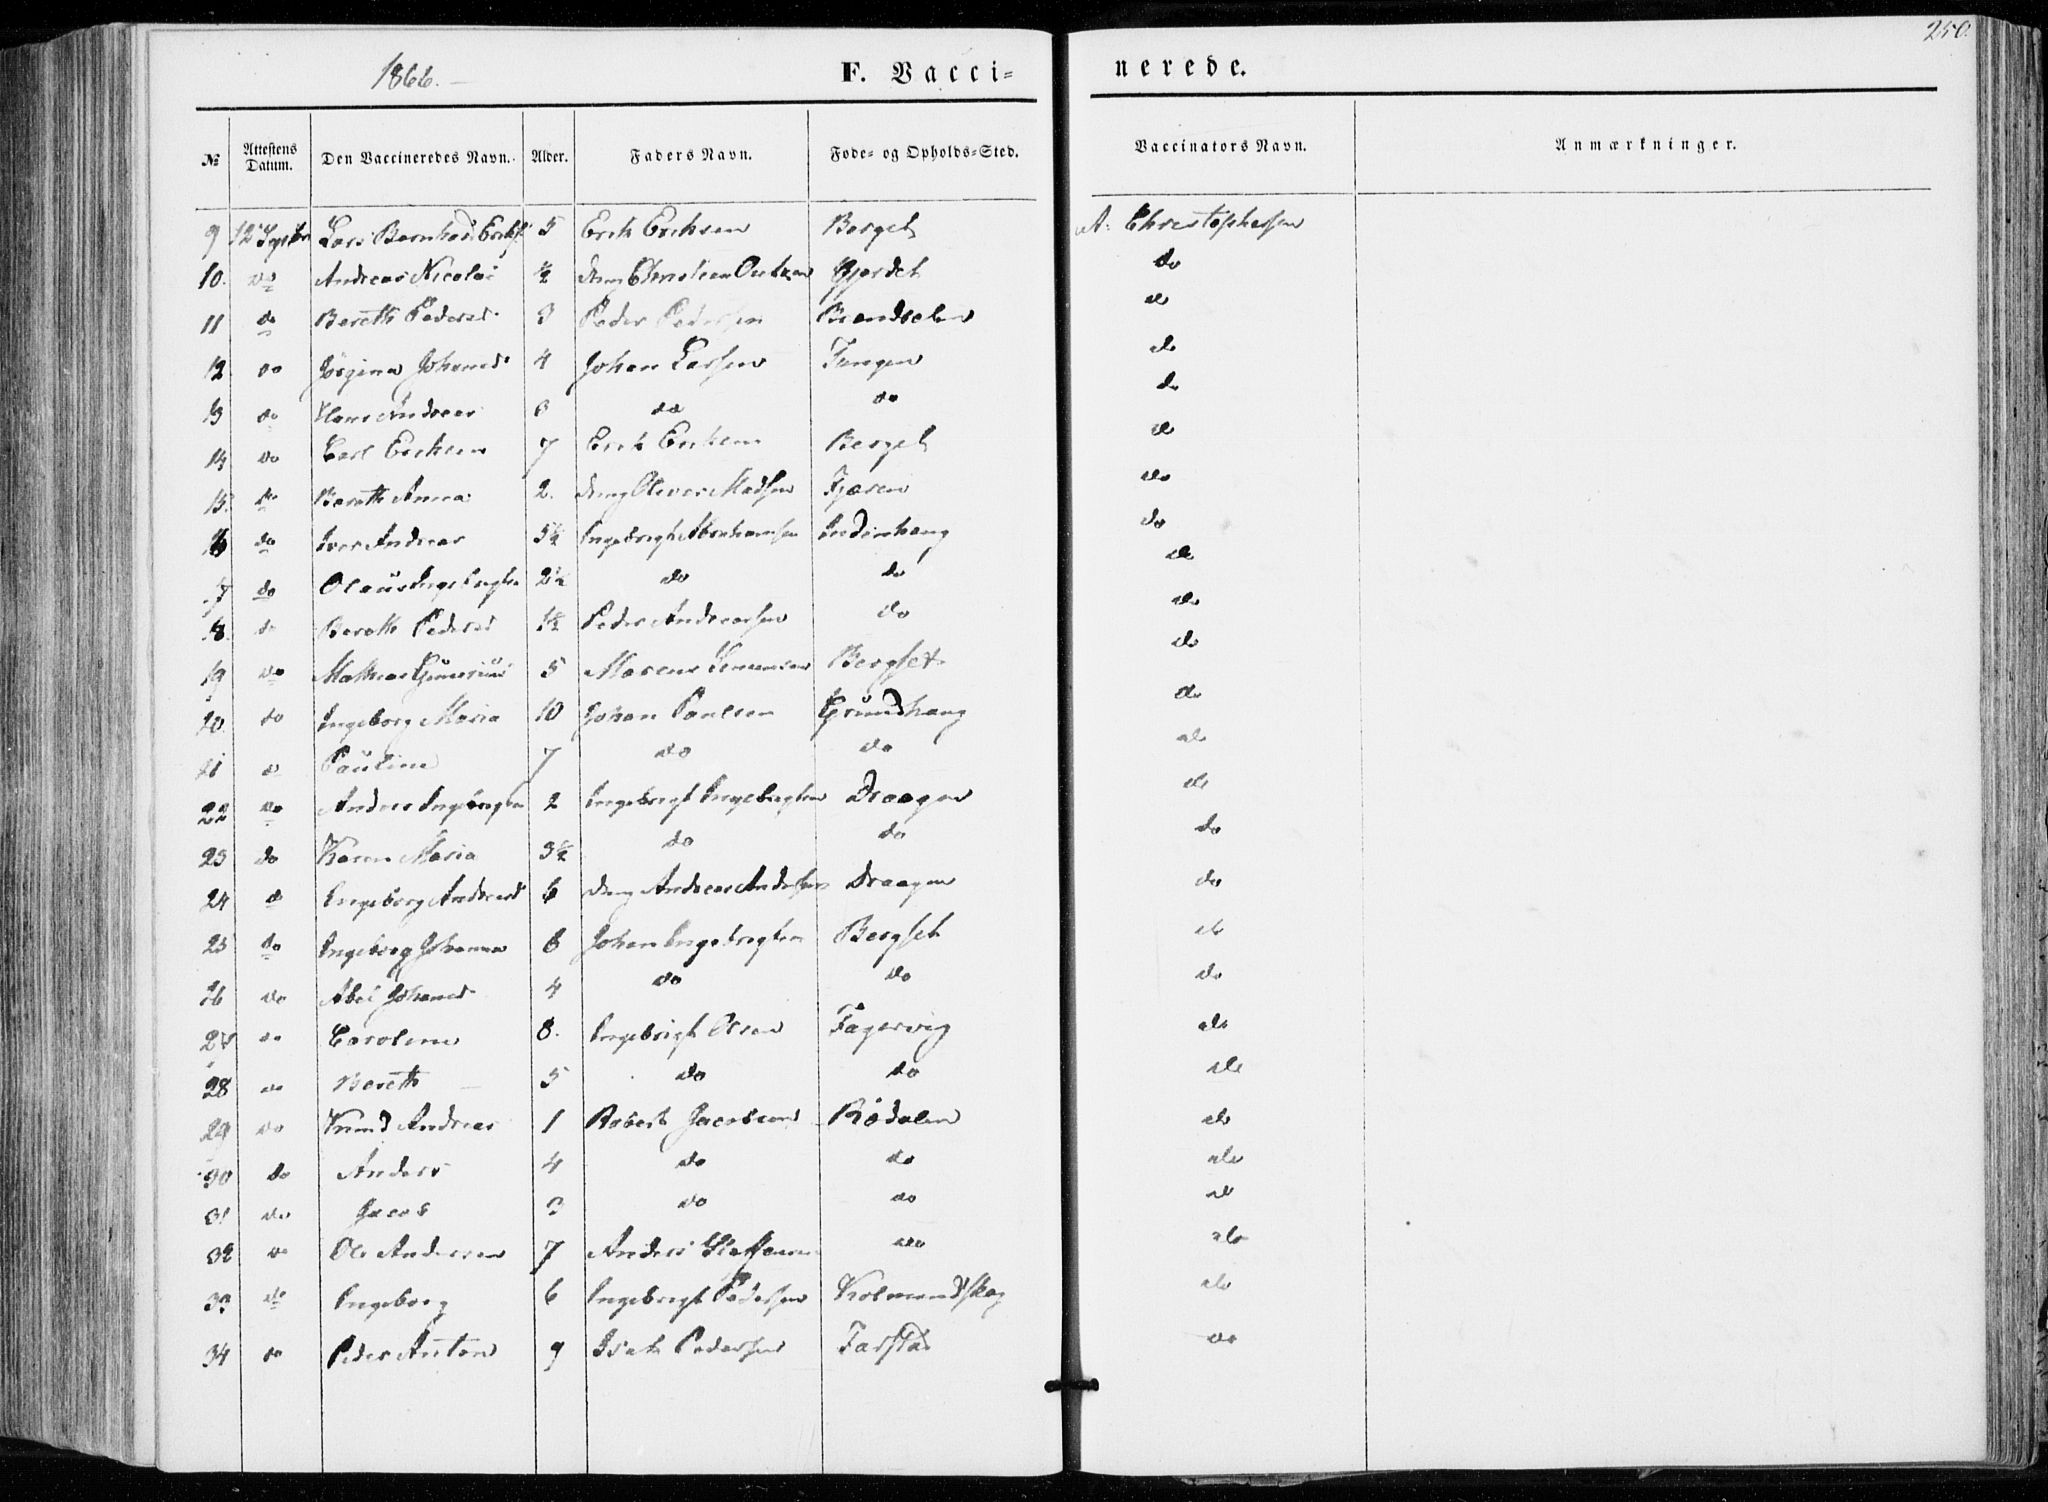 250.
1866.- F. Vacci= nerede.
№ Attestens Datum. Den Vaccineredes Navn. Alder. Faders Navn. Føde= og Opholds=Sted. Vaccinators Navn. Anmærkninger.
9 12 Lars Bernhard 5 Erik Eriksen Berget A. Christophersen
10. do Andreas Nicolai ½ Gjerdet do
11 do Bereth Pedersd 3 Peder Pedersen do
12. do Jørgina Johansd 4 Johan Larsen Tangen do
13 do Hans Andreas do do do
14 do Carl Eriksen 7 Erik Eriksen Berget do
15. do Bereth Anna 2. Madsen do
16 do Iver Andreas 5½ Ingebrigt Abrahamsen do
17 do Olaus Ingebrigtsen 2½ do do do
18. do Bereth Pedersd 1½ Peder Andreassen do do
19 do Mathias 5 Bergset do
20. do Ingeborg Maria 10 Johan Paulsen Grundhaug do
21 do Paulina 7 do do do
22 do Anders Ingebrigtsen 2 Ingebrigt Ingebrigtsen Draagen do
23 do Karen Maria 3½ do do do
24 do Ingeborg Andersd 6 Andreas Andersen Draagen do
25 do Ingeborg Johanna 6 Johan Ingebrigtsen Bergset do
26 do Abel Johansd 4 do do do
27 do Caroline 8. Ingebrigt Olsen Fagervig do
28 do Bereth 5 do do do
29 do Knud Andreas 1 Robert Jacobsen Rødalen do
30 do Anders 4 do do do
31 do Jacob 3 do do do
32 do Ole Andersen 7 Anders do do
33 do Ingeborg 6 Ingebrigt Pedersen Kolmandskog do
34 do Peder Anton 9 Isak Pedersen Farstad do